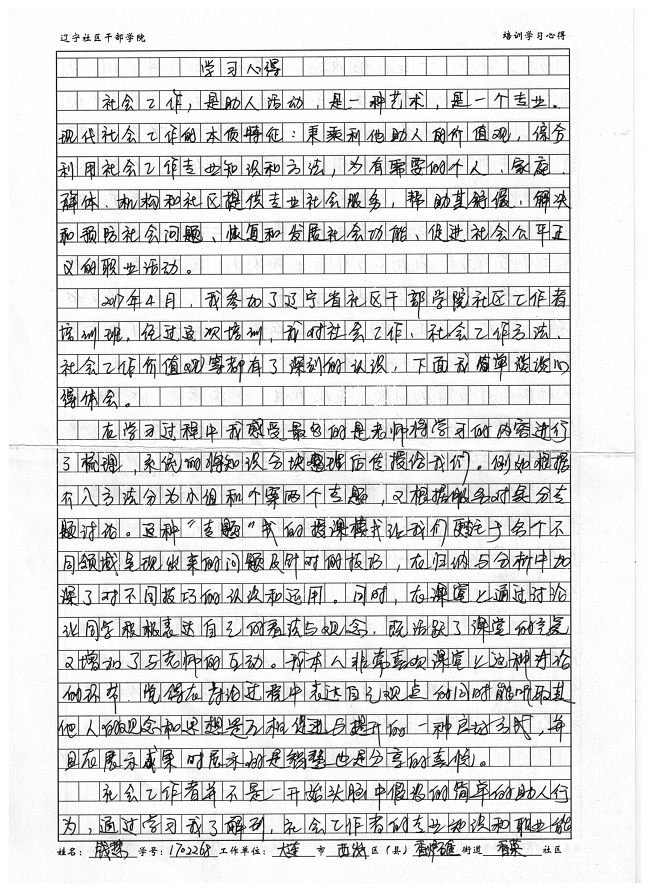 辽宁社区干部学院 培训学习心得
学习心得
社会工作，是助人活动，是一种艺术，是一个专业。
现代社会工作的本质特征：秉乘利他助人的价值观，综合
利用社会工作专业知识和方法，为有需要的个人、家庭、
群体、机构和社区提供专业社会服务，帮助其舒缓、解决
和预防社会问题，恢复和发展社会功能，促进社会公平正
义的职业活动。
2017年4月，我参加了辽宁省社区干部学院社区工作者
培训班，经过这次培训，我对社会工作、社会工作方法、
社会工作价值观等都有了深刻的认识，下面我简单谈谈心
得体会。
在学习过程中我感受最多的是老师将学习的内容进行
了梳理，系统的将知识分块整理后传授给我们。例如根据
介入方法分为小组和个案两个专题，又根据服务对象分专
题讨论。这种“专题”式的授课模式让我们更专注于各个不
同领域呈现出来的问题及针对的技巧，在归纳与分析中加
深了对不同技巧的认识和运用。同时，在课堂上通过讨论
让同学积极表达自己的看法与观念，既活跃了课堂的气氛
又增加了与老师的互动。我本人非常喜欢课堂上这种讨论
的环节，觉得在讨论过程中表达自己观点的同时能听取其
他人的观念和思想是互相促进与提升的一种良好方式，并
且在展示成果时展示的是智慧也是分享的喜悦。
社会工作者并不是一开始头脑中假设的简单的助人行
为，通过学习我了解到，社会工作者的专业知识和职业能
姓名： 学号：1702268 工作单位：大连 市 西岗 区（县） 街道 社区